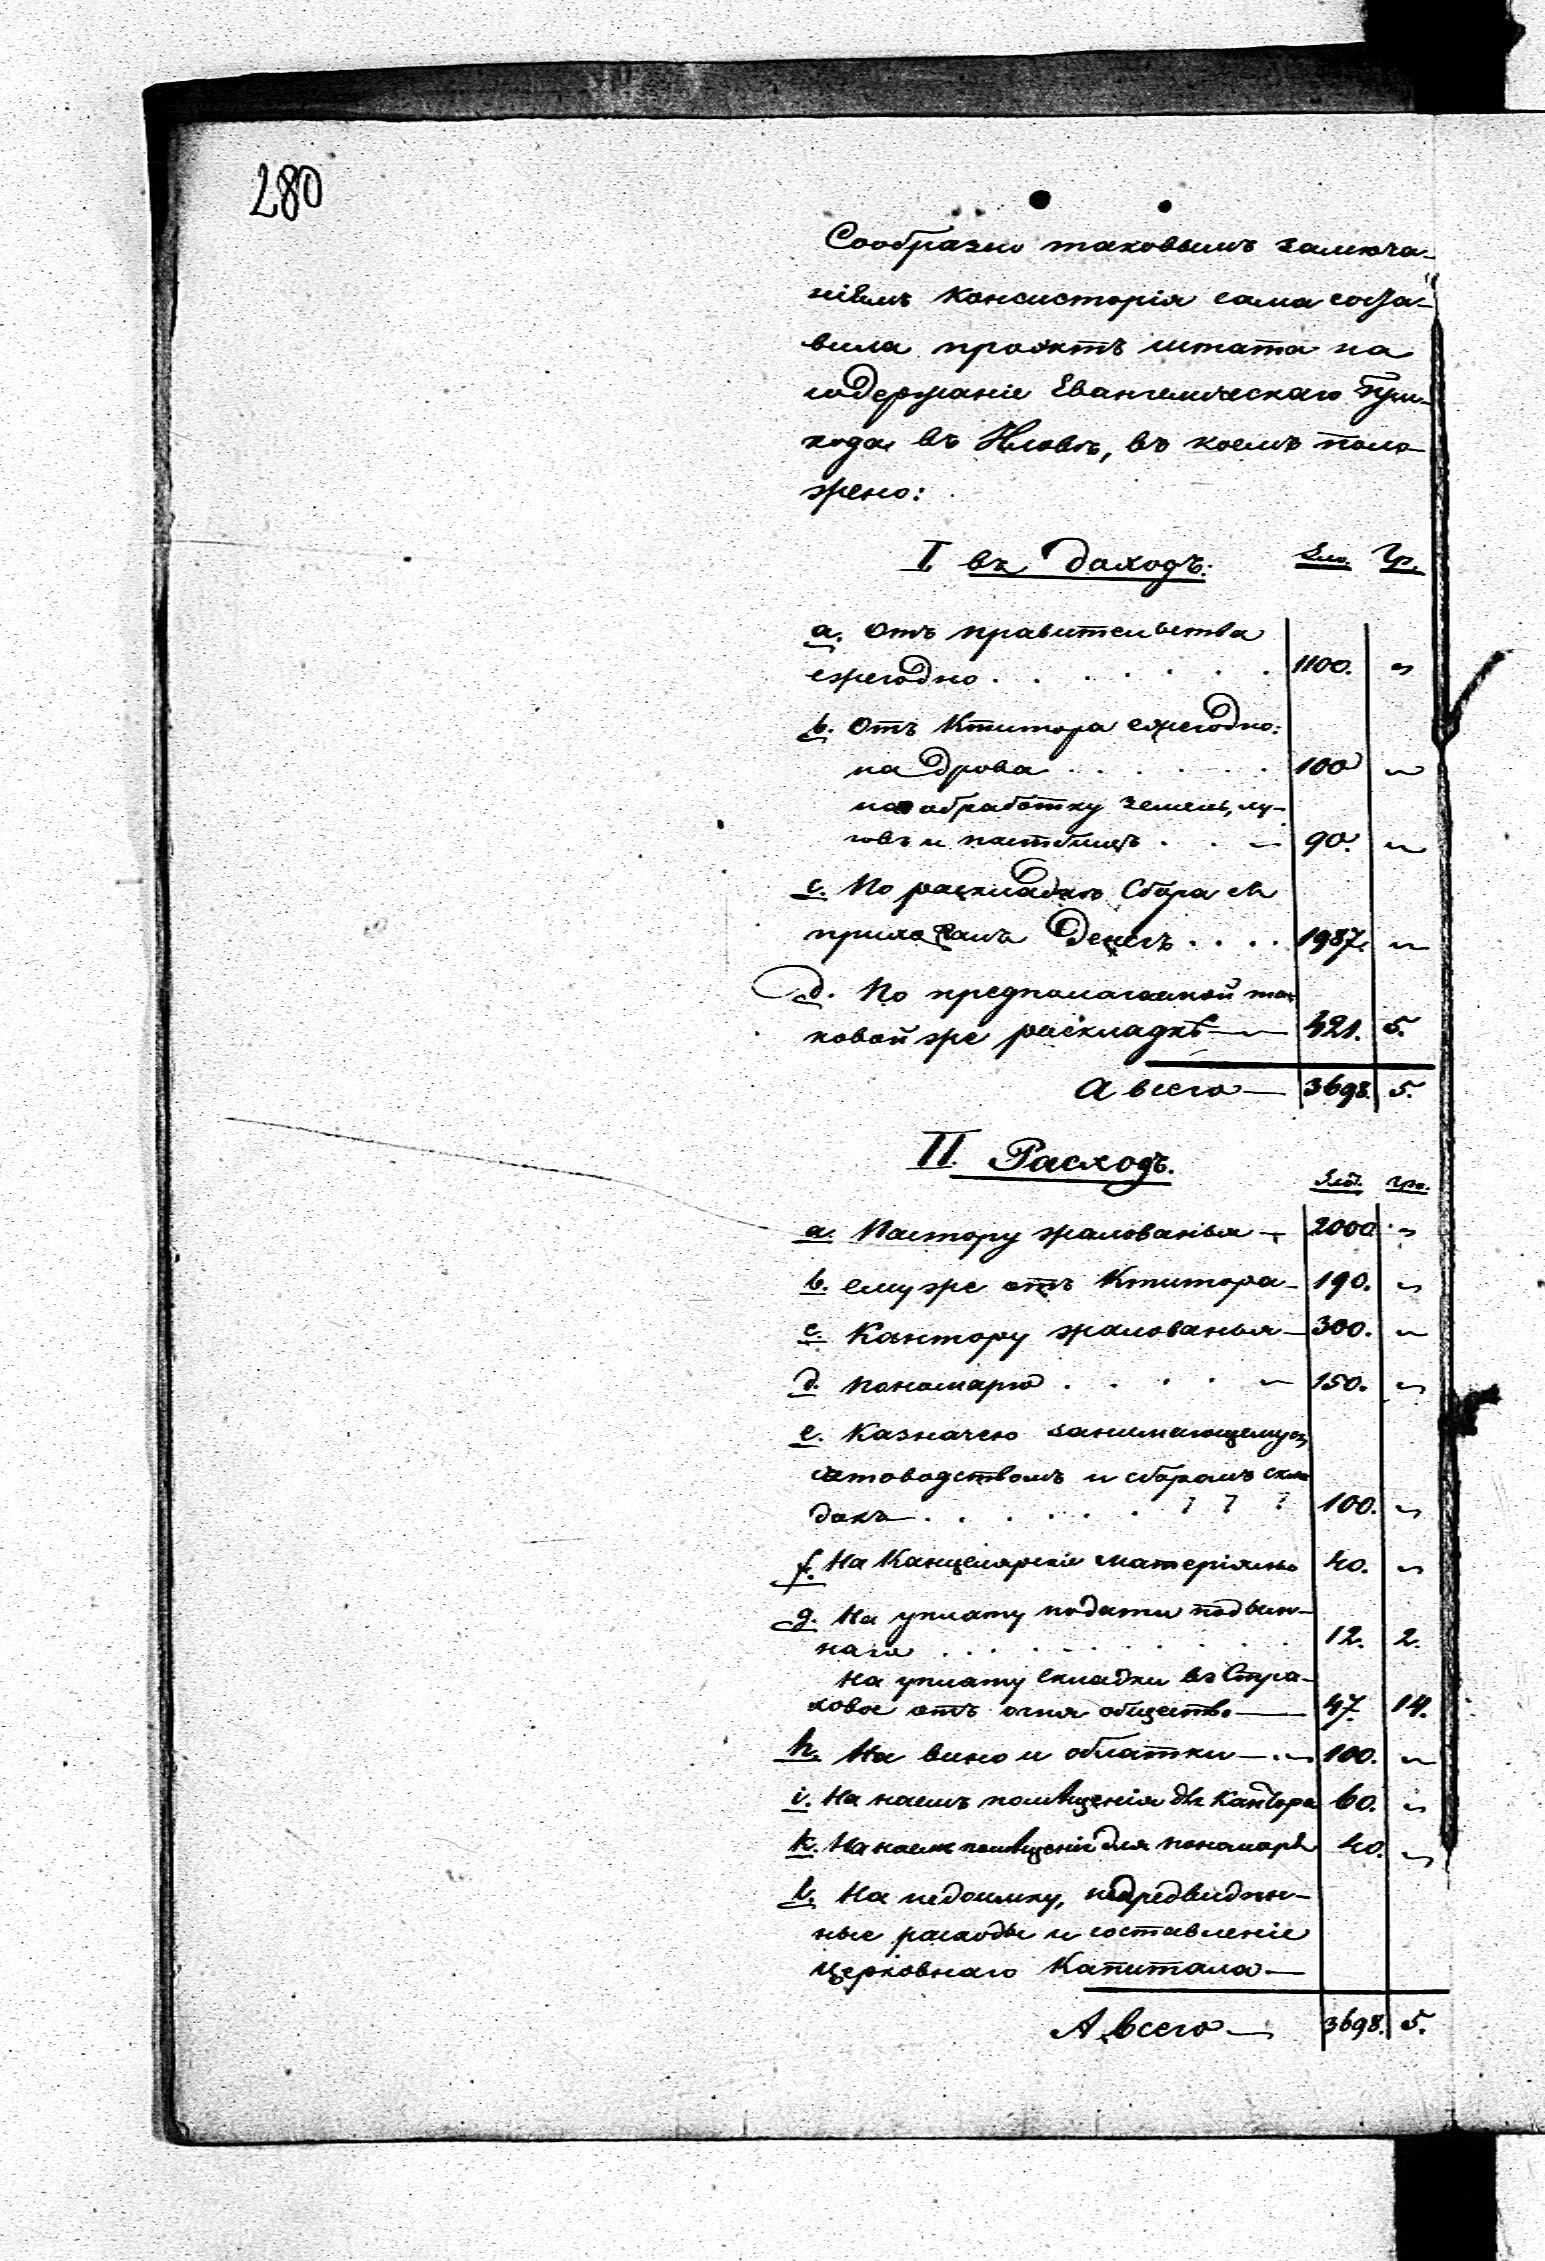 280
Сообразно таковымъ замеча-
ніямъ Консисторія сама соста-
вила проэктъ штата на
содержаніе Евангелическаго При-
хода въ Иловѣ, въ коемъ поло-
жено:
I въ доходъ: Зло. Гр.
a. Отъ правительства
ежегодно . . . . . . . 1100. "
b. Отъ Ктитора ежегодно:
на дрова . . . . . . 100 "
на обработку земель, лу-
говъ и пастбищъ . . — 90. "
c. По раскладкѣ Сбора съ
прихожанъ денегъ . . . . 1987. "
d. По предполагаемой та-
ковой же раскладкѣ — 421. 5.
А всего — 3698. 5.
II. Расходъ.
Злот. гро.
a. Пастору жалованья — 2000. "
b. ему же отъ Ктитора — 190. "
c. Кантору жалованья — 300. "
d. пономарю . . . . — 150. "
e. Казначею занимающемуся
счетоводствомъ и сборомъ скла-
докъ . . . . . . 100. "
f. На Канцелярскіе матеріялы 40. "
g. На уплату подати подым-
наго . . . . . . . . . 12. 2.
На уплату складки въ Стра-
ховое отъ огня общество — 47. 14.
h. На вино и облатки — 100. "
i. На наемъ помѣщенія для Кантора 60. "
k. На наемъ помѣщенія для пономаря 40. "
l. На недоимку, непредвидѣн-
ные расходы и составленіе
церковнаго Капитала —
А всего — 3698. 5.